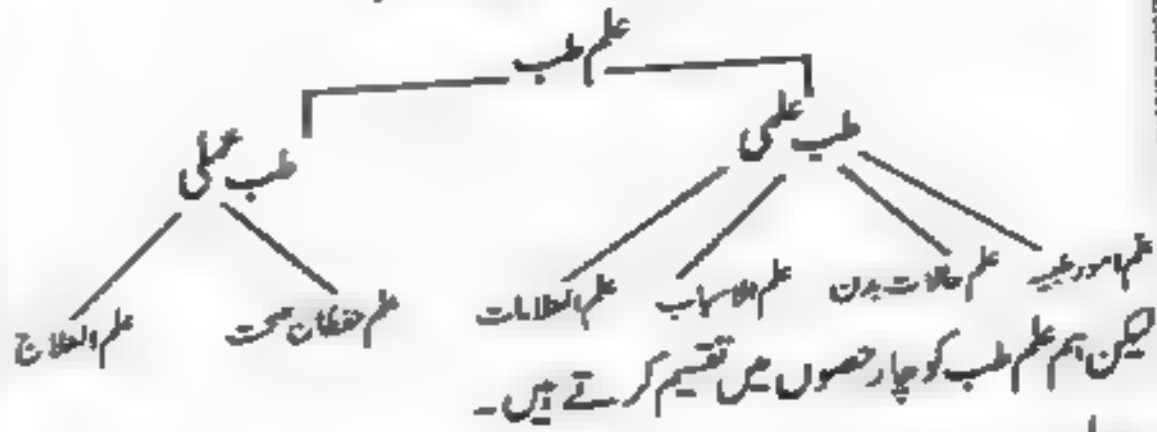 علم طب
طب علمی
طب عملی
علم امور طبیہ
علم حالات بدن
علم الاسباب
علم العلامات
علم حفظان صحت
علم العلاج
لیکن ہم علم طب کو چار حصوں میں تقسیم کرتے ہیں۔